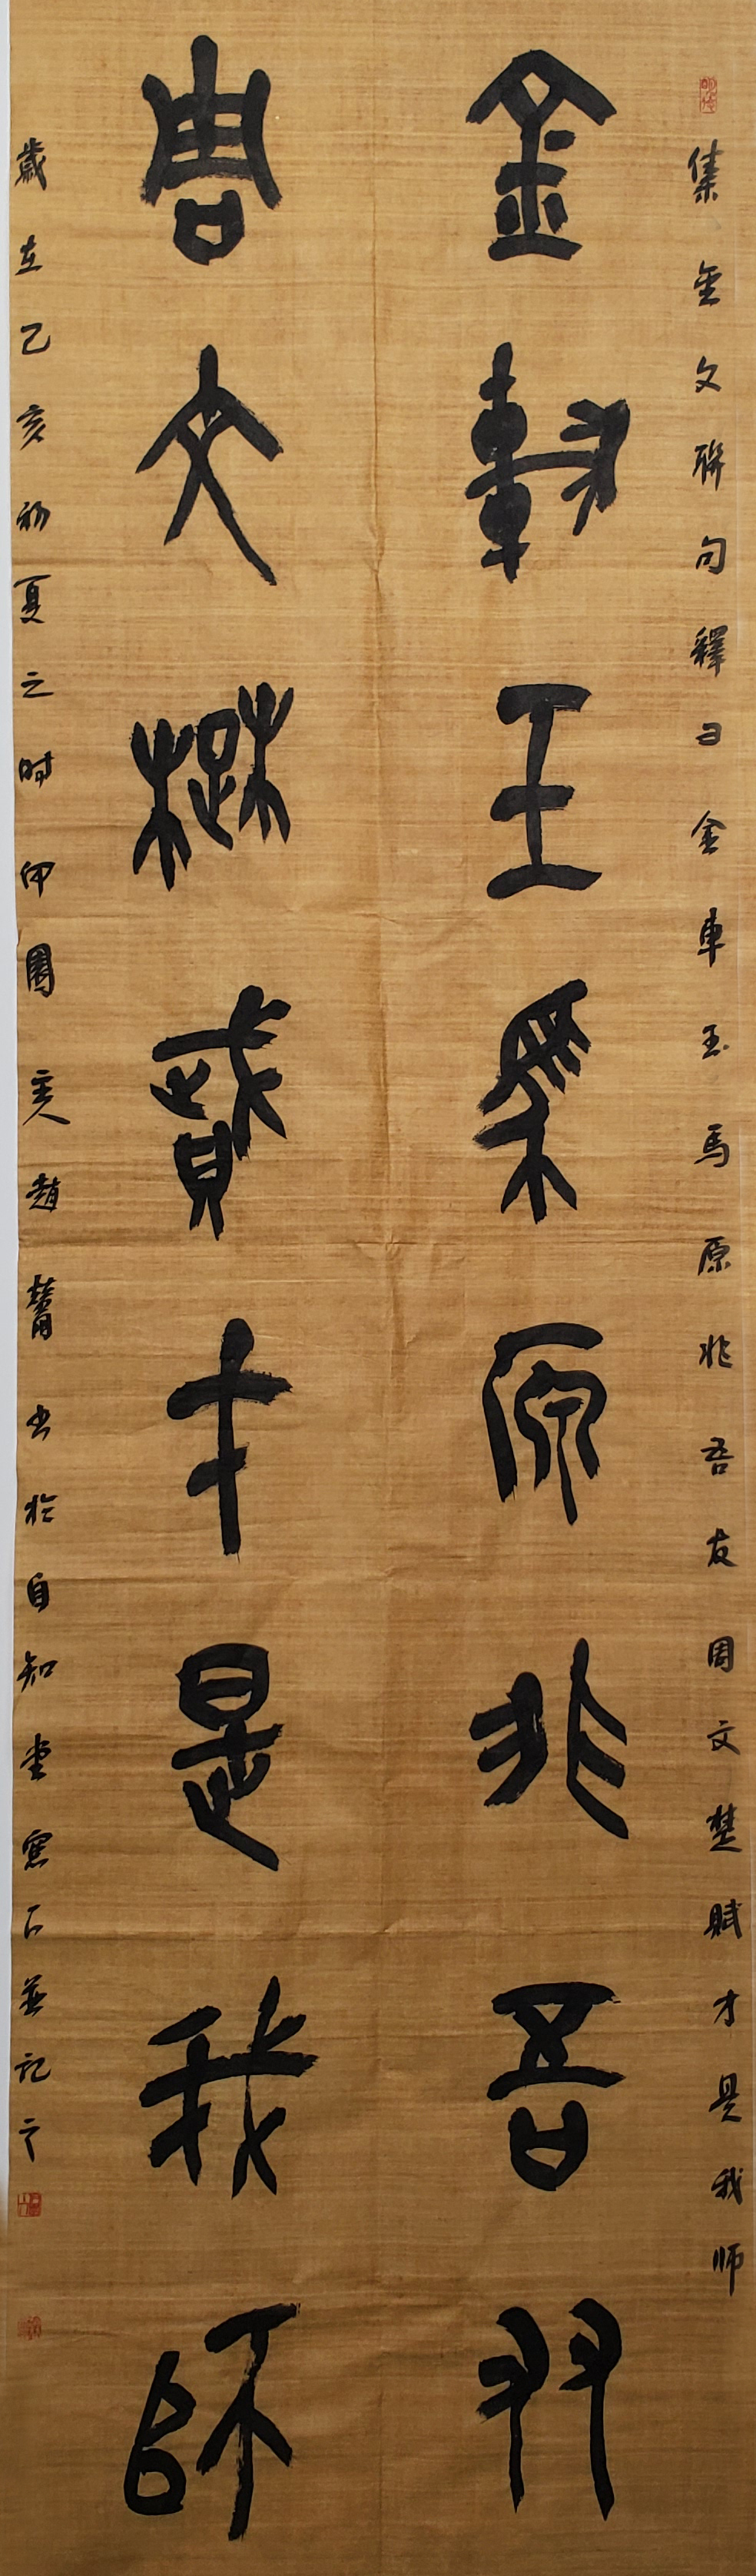 集金文聯句釋曰金車玉馬原非吾友周文楚賦才是我师
金車玉馬原非吾友
周文楚賦才是我師
歲在乙亥初夏之时 園主人趙 书於自知堂窓下並記之